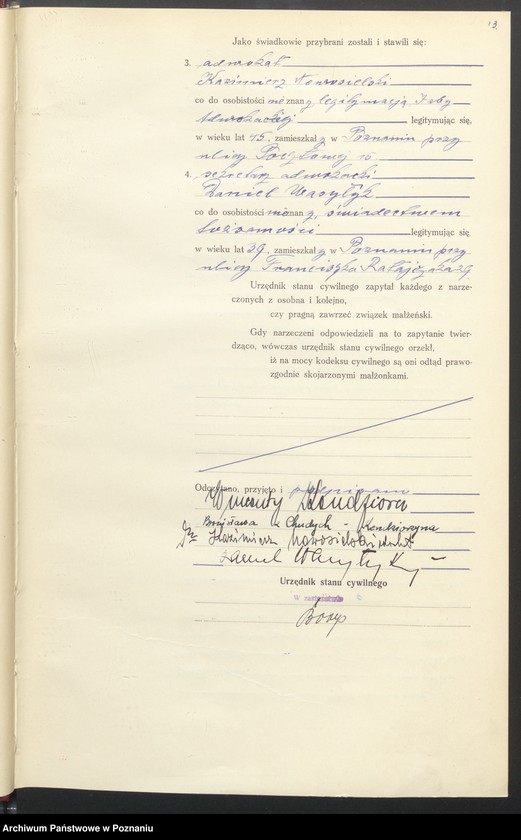 3.
Jako świadkowie przybrani zostali i stawili się:
3. adwokat
Kazimierz Nowosielski
co do osobistości nie znany legitymacją Izby
Adwokackiej legitymując się,
w wieku lat 45, zamieszkały w Poznaniu przy
ulicy Pocztowej
4. sekretarz adwokacki
Daniel Wasyłyk
co do osobistości nieznany, świadectwem
tożsamości legitymując się
w wieku lat 39, zamieszkały w Poznaniu przy
ulicy Franciszka Ratajczaka 29
Urzędnik stanu cywilnego zapytał każdego z narze-
czonych z osobna i kolejno,
czy pragną zawrzeć związek małżeński.
Gdy narzeczeni odpowiedzieli na to zapytanie twier-
dząco, wówczas urzędnik stanu cywilnego orzekł,
iż na mocy kodeksu cywilnego są oni odtąd prawo-
zgodnie skojarzonymi małżonkami.
Odczytano, przyjęto i podpisano
Wincenty
Bronisława z Chudych -
Kazimierz Nowosielski adwokat
Daniel Wasyłyk
Urzędnik stanu cywilnego
W zastępstwie
Archiwum Państwowe w Poznaniu